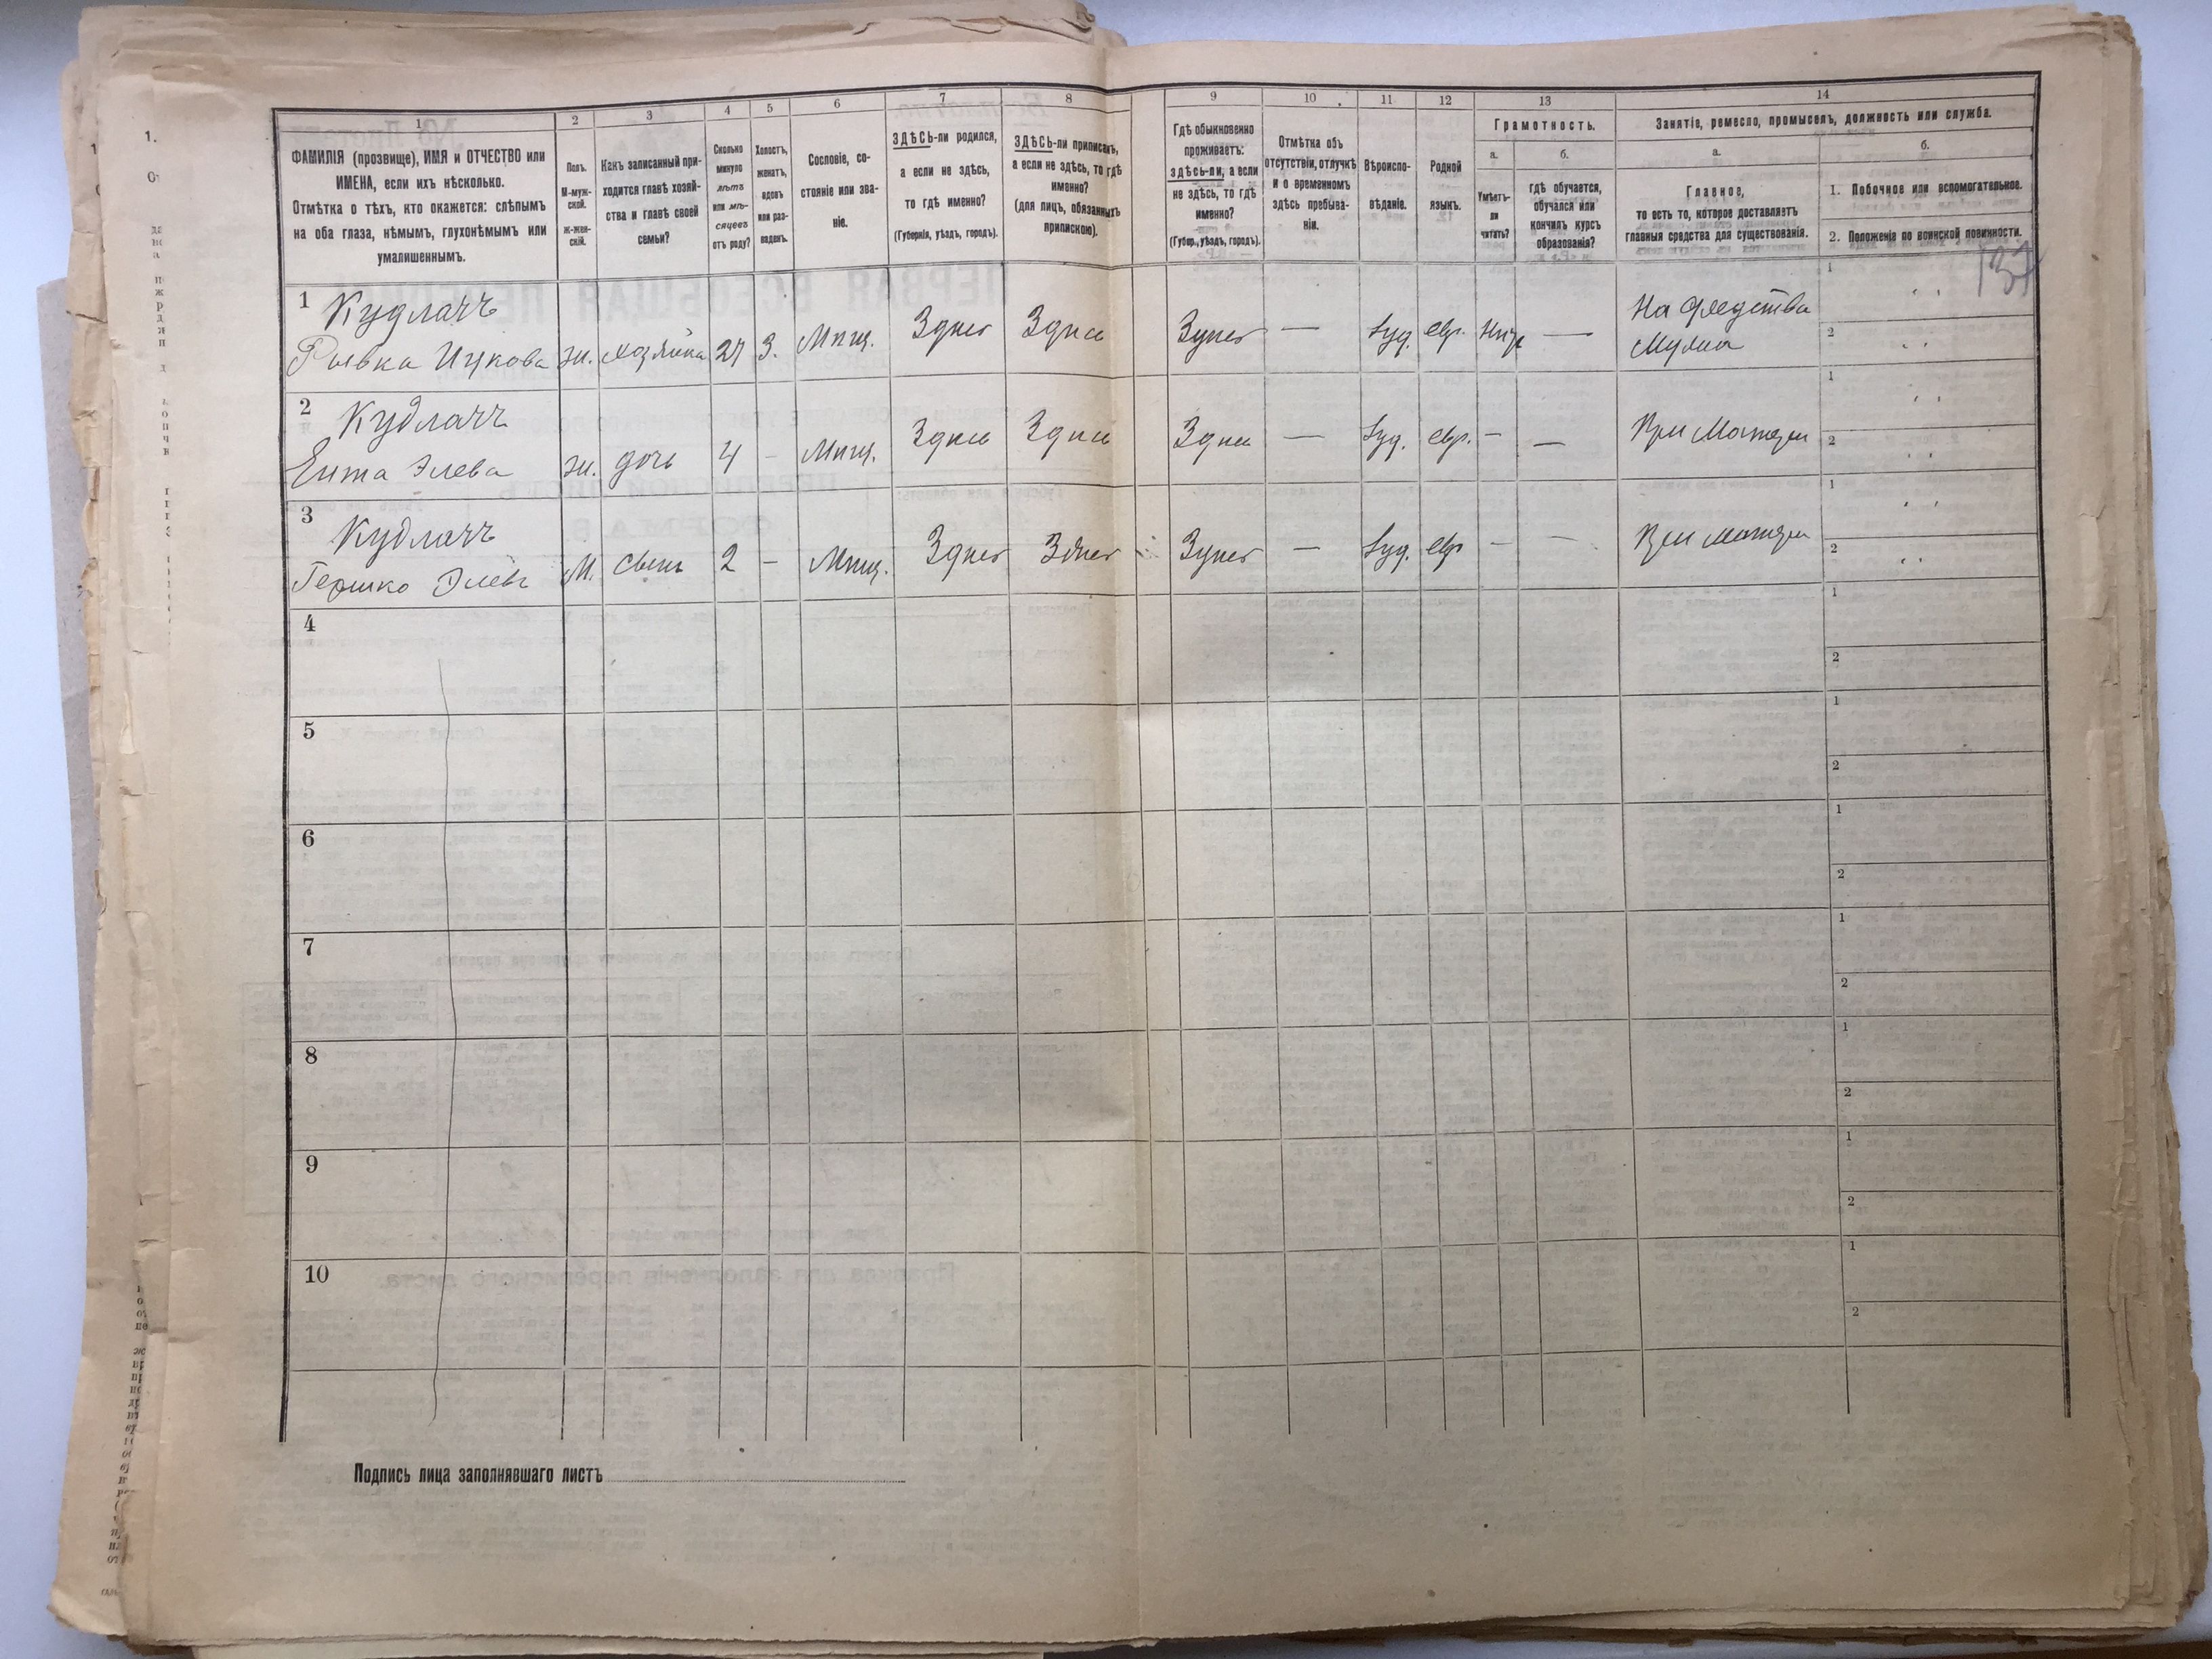 1 2 3 4 5 6 7 8 9 10 11 12 13 14
ФАМИЛІЯ (прозвище), ИМЯ и ОТЧЕСТВО или
ИМЕНА, если ихъ нѣсколько.
Отмѣтка о тѣхъ, кто окажется: слѣпымъ
на оба глаза, нѣмымъ, глухонѣмымъ или
умалишеннымъ.
Полъ.
М-муж-
ской.
Ж-жен-
скій.
Какъ записанный при-
ходится главѣ хозяй-
ства и главѣ своей
семьи?
Сколько
минуло
лѣтъ
или мѣ-
сяцевъ
отъ роду?
Холостъ,
женатъ,
вдовъ
или раз-
веденъ.
Сословіе, со-
стояніе или зва-
ніе.
ЗДѢСЬ-ли родился,
а если не здѣсь,
то гдѣ именно?
(Губернія, уѣздъ, городъ).
ЗДѢСЬ-ли приписанъ,
а если не здѣсь, то гдѣ
именно?
(для лицъ, обязанныхъ
припискою).
Гдѣ обыкновенно
проживаетъ:
здѣсь-ли, а если
не здѣсь, то гдѣ
именно?
(Губер., уѣздъ, городъ).
Отмѣтка объ
отсутствіи, отлучкѣ
и о временномъ
здѣсь пребыва-
ніи.
Вѣроиспо-
вѣданіе.
Родной
языкъ.
Грамотность.
а.
Умѣетъ-
ли
читать?
б.
гдѣ обучается,
обучался или
кончилъ курсъ
образованія?
Занятіе, ремесло, промыселъ, должность или служба.
а.
Главное,
то есть то, которое доставляетъ
главныя средства для существованія.
б.
1. Побочное или вспомогательное.
2. Положеніе по воинской повинности.
137
1 Кудлачъ
Рывка Ицкова ж. хозяйка 27 З. Мѣщ. Здѣсь Здѣсь Здѣсь — Іуд. евр. Нѣтъ — На средства
мужа
1
2
2 Кудлачъ
Ента Элева ж. дочь 4 - Мѣщ. Здѣсь Здѣсь Здѣсь — Іуд. евр. - — При матери
1
2
3 Кудлачъ
Гершко Элевъ М. сынъ 2 - Мѣщ. Здѣсь Здѣсь Здѣсь — Іуд. евр - — При матери
1
2
4
1
2
5
1
2
6
1
2
7
1
2
8
1
2
9
1
2
10
1
2
Подпись лица заполнявшаго листъ